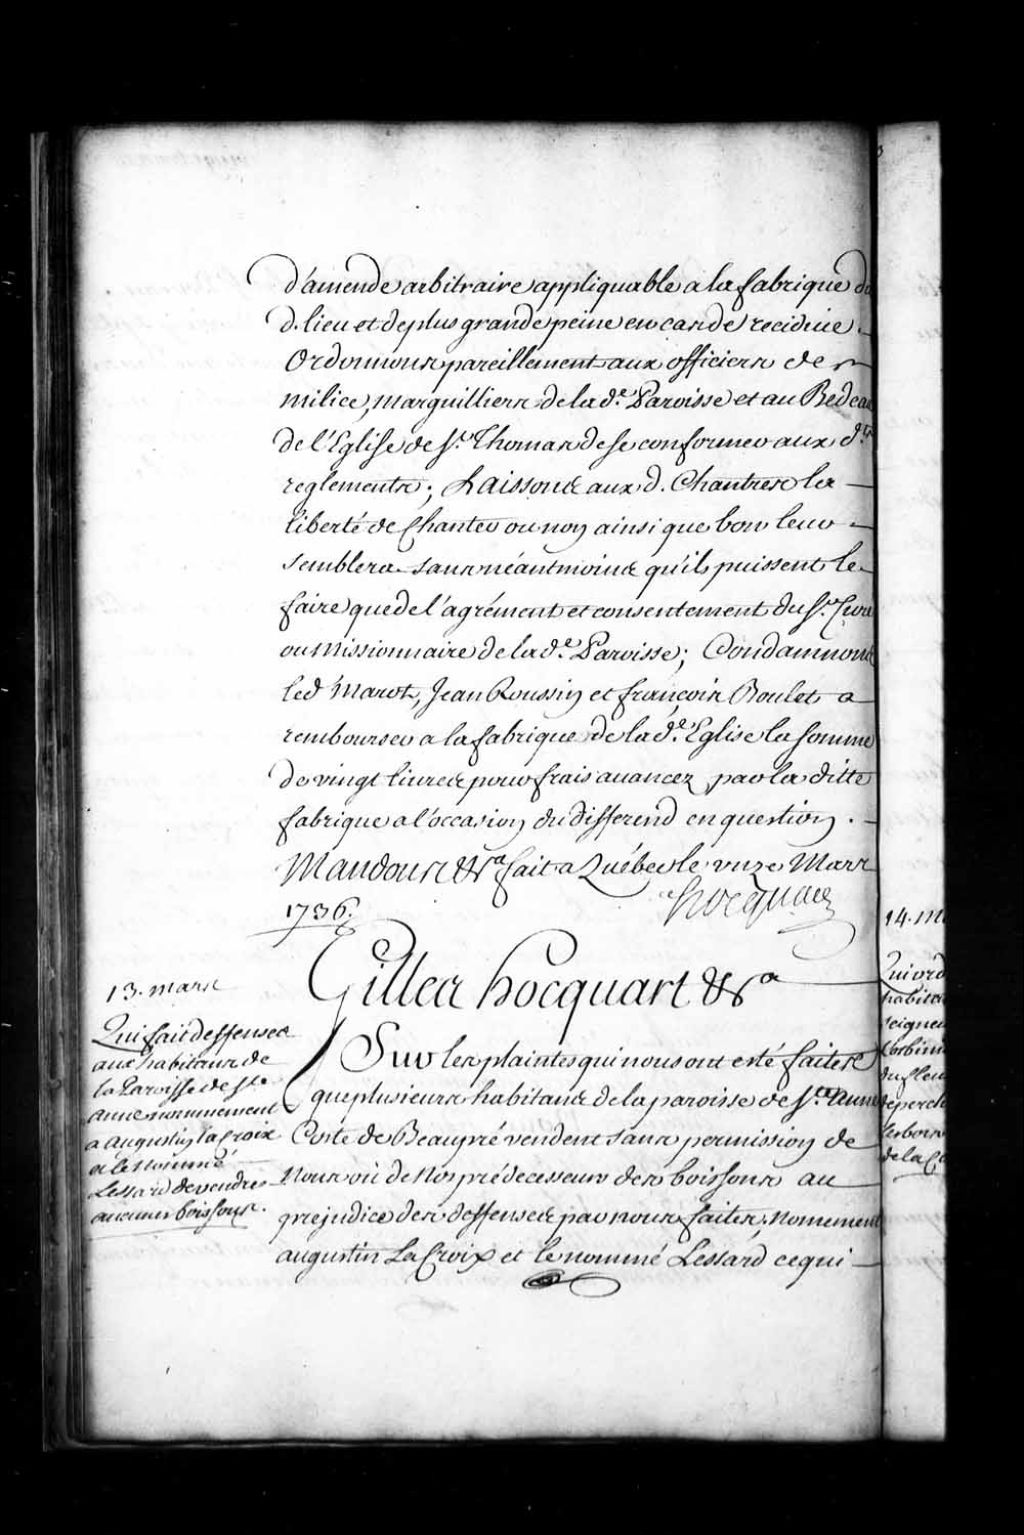 d'amende arbitraire appliquable a la fabrique du
d. lieu et de plus grande peine en cas de recidive.
Ordonnons pareillement aux officiers de
milice, marguilliers de la d.e Paroisse et au Bedeau
de l'Eglise de St. Thomas de se conformer aux d.ts
reglements; Laissons aux d. Chantres la
liberté de Chanter ou non ainsi que bon leur
semblera sans néantmoins qu'ils puissent le
faire que de l'agrément et consentement du Sr. Curé
ou Missionnaire de la d.e Paroisse; Condamnons
led Marot, Jean Roussin et françois Boulet a
rembourser a la fabrique de la d.e Eglise la somme
de vingt livres pour frais avancez par la ditte
fabrique a l'occasion du differend en question.
Mandons &ra fait a Québec le unze Mars
1736.
hocquart
13. mars
Qui fait deffenses
aux habitans de
la Paroisse de Ste
Anne nommement
a Augustin la Croix
et le Nommé
Lessard de vendre
aucunes boissons.
Gilles hocquart &ra
Sur les plaintes qui nous ont esté faites
que plusieurs habitans de la paroisse de Ste Anne
Coste de Beaupré vendent sans permission de
Nous ou de Nos prédecesseurs des boissons au
prejudice des deffenses par nous faites, nomement
augustin La Croix et le nommé Lessard ce qui
14. M
Qui ord
habita
seigneu
du fleu
de la